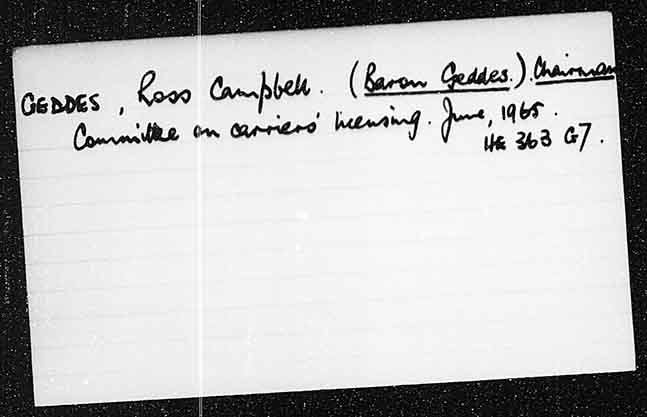 GEDDES, Ross Campbell. (Baron Geddes.). Chairman
Committee on carriers' licensing. June, 1965.
HE 363 G7.